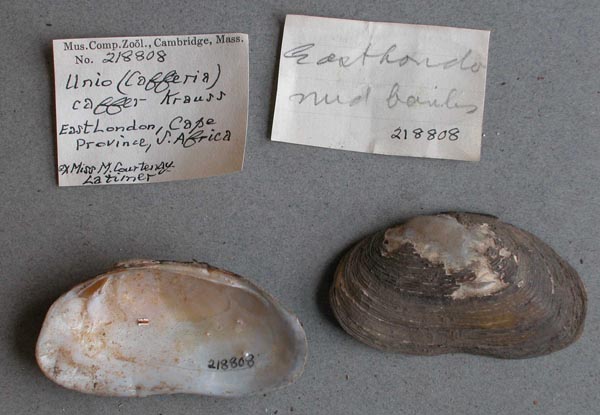 Mus. Comp. Zoöl., Cambridge, Mass.
No. 218808
Unio (Cafferia)
caffer Krauss
East London, Cape
Province, S. Africa
ex Miss M. Courtenay
Latimer
East London
mud banks
218808
218808